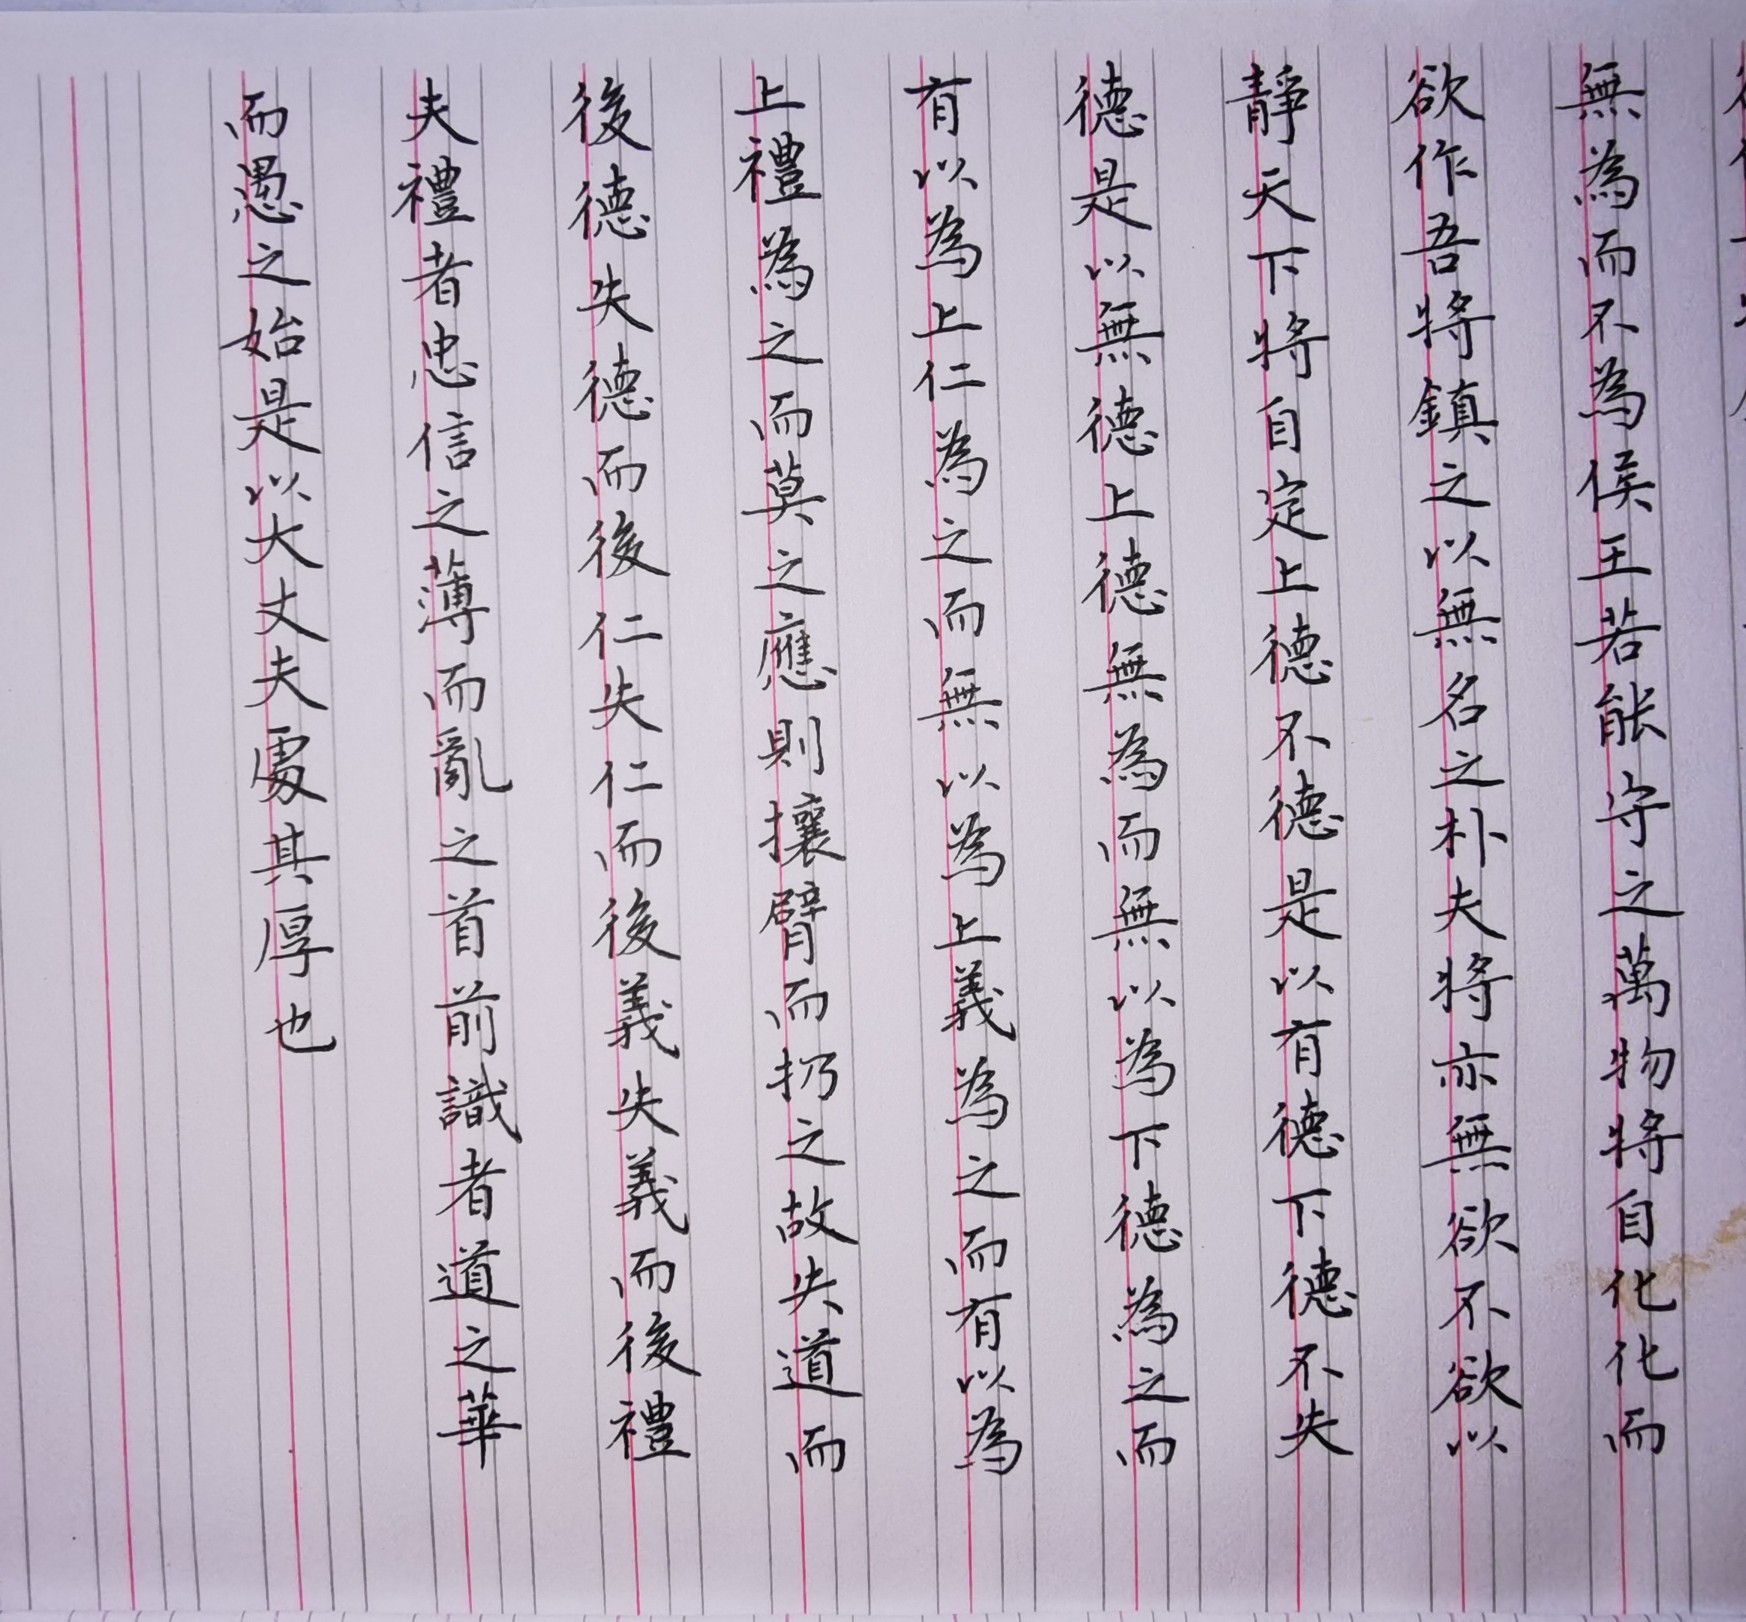 無為而不為侯王若能守之萬物將自化化而
欲作吾將鎮之以無名之朴夫將亦無欲不欲以
靜天下將自定上德不德是以有德下德不失
德是以無德上德無為而無以為下德為之而
有以為上仁為之而無以為上義為之而有以為
上禮為之而莫之應則攘臂而扔之故失道而
後德失德而後仁失仁而後義失義而後禮
夫禮者忠信之薄而亂之首前識者道之華
而愚之始是以大丈夫處其厚也